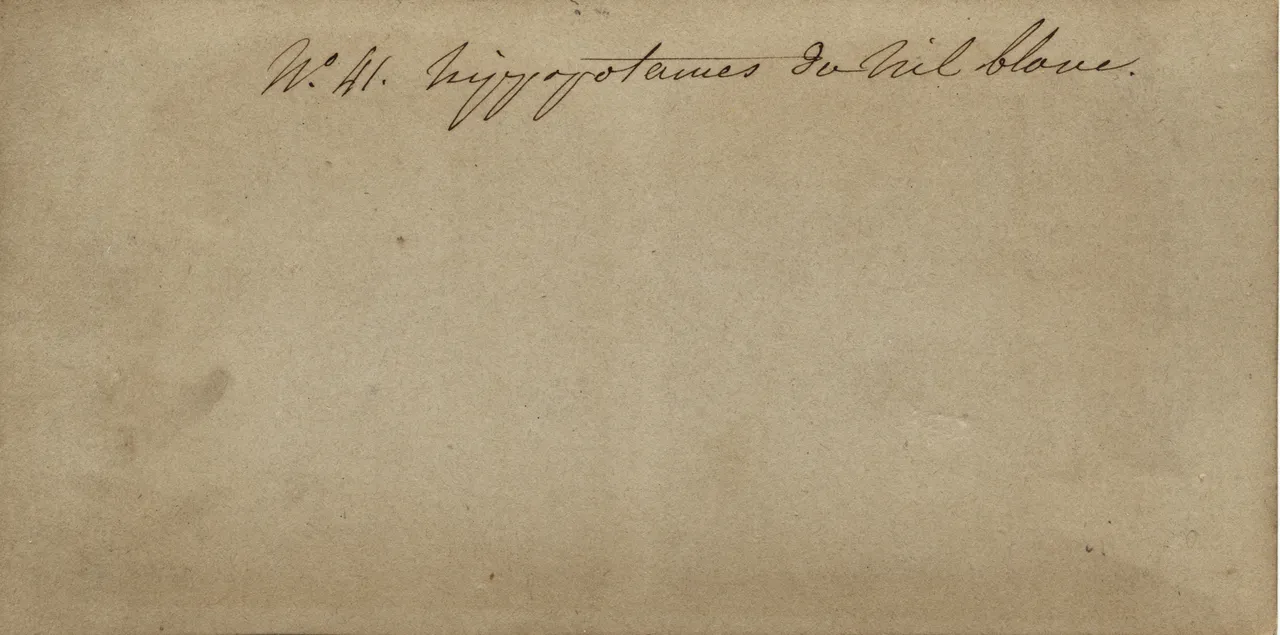 Nº 41. hyppopotames du Nil blanc.